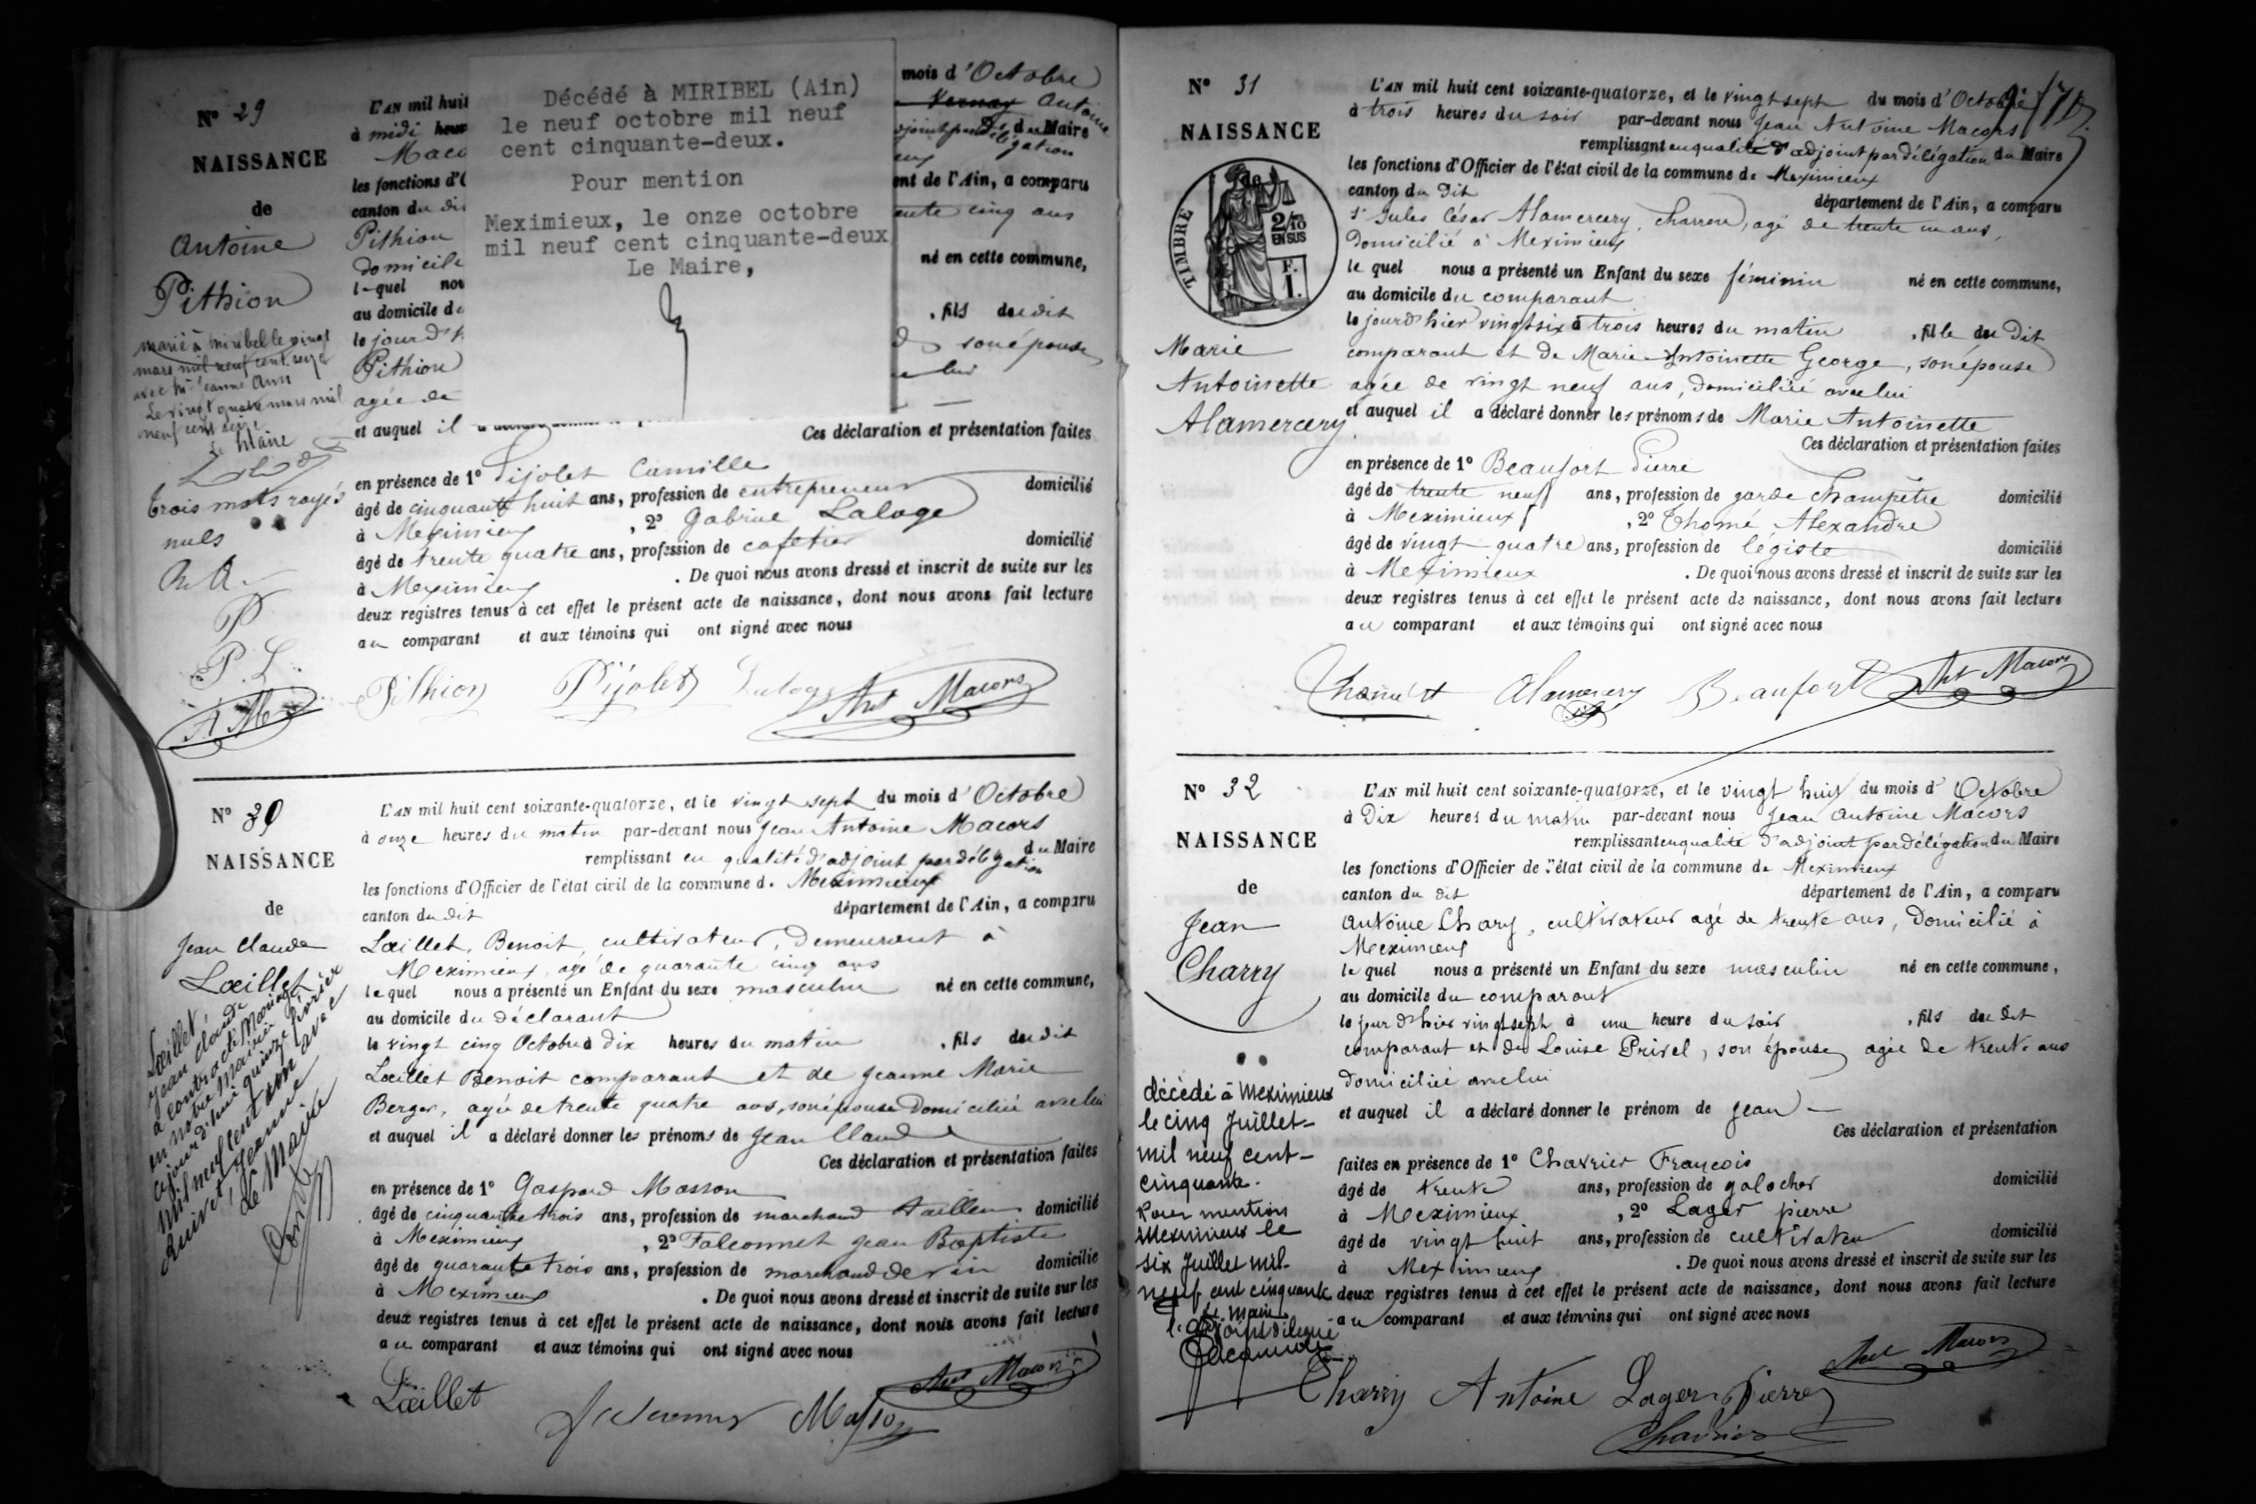 N° 29
NAISSANCE
de
Antoine
Pithion
marié à Miribel le vingt
mars mil neuf cent seize
avec
Le vingt quatre mars mil
neuf cent seize
Le Maire
trois mots rayés
nuls
P
P. L.
A M
L'AN mil huit
à midi heur
Maco
les fonctions d'O
canton du dit
Pithion
domicile
le quel nou
au domicile du
le jour d'h
Pithion
agée de
et auquel il
Décédé à MIRIBEL (Ain)
le neuf octobre mil neuf
cent cinquante-deux.
Pour mention
Meximieux, le onze octobre
mil neuf cent cinquante-deux
Le Maire,
mois d'Octobre
Vernay Antoine
adjoint par délégation du Maire
ent de l'Ain, a comparu
ente cinq ans
né en cette commune,
, fils du dit
son épouse
lui
Ces déclaration et présentation faites
en présence de 1° Pijolet Camille
âgé de cinquante huit ans, profession de entrepreneur domicilié
à Meximieux , 2° Gabriel Laloge
âgé de trente quatre ans, profession de cafetier domicilié
à Meximieux . De quoi nous avons dressé et inscrit de suite sur les
deux registres tenus à cet effet le présent acte de naissance, dont nous avons fait lecture
au comparant et aux témoins qui ont signé avec nous
Pithion Pijolet Laloge Ant Macors
N° 30
NAISSANCE
de
Jean Claude
Lœillet
Lœillet,
Jean Claude
a contracté Mariage
en notre Mairie
ajourd'hui quinze février
mil neuf cent un avec
Jeanne
Le Maire
L'AN mil huit cent soixante-quatorze, et le vingt sept du mois d'Octobre
à onze heures du matin par-devant nous Jean Antoine Macors
remplissant en qualité d'adjoint par délégation du Maire
les fonctions d'Officier de l'état civil de la commune de Meximieux
canton du dit département de l'Ain, a comparu
Lœillet, Benoit, cultivateur, Demeurant à
Meximieux, agé de quarante cinq ans
le quel nous a présenté un Enfant du sexe masculin né en cette commune,
au domicile du déclarant
le vingt cinq Octobre à dix heures du matin , fils du dit
Lœillet Benoit comparant et de Jeanne Marie
Berger, agée de trente quatre ans, son épouse domiciliée avec lui
et auquel il a déclaré donner les prénoms de Jean Claude
Ces déclaration et présentation faites
en présence de 1° Gaspard Masson
âgé de cinquante trois ans, profession de marchand tailleur domicilié
à Meximieux , 2° Falconnet Jean Baptiste
âgé de quarante trois ans, profession de marchand de vin domicilié
à Meximieux . De quoi nous avons dressé et inscrit de suite sur les
deux registres tenus à cet effet le présent acte de naissance, dont nous avons fait lecture
au comparant et aux témoins qui ont signé avec nous
Ant Macors
Lœillet Masson
N° 31
NAISSANCE
de
TIMBRE
2/10
EN SUS
F.
1.
Marie
Antoinette
Alamercery
L'AN mil huit cent soixante-quatorze, et le vingt sept du mois d'Octobre
à trois heures du soir par-devant nous Jean Antoine Macors
remplissant en qualité d'adjoint par délégation du Maire
les fonctions d'Officier de l'état civil de la commune de Meximieux
canton du dit département de l'Ain, a comparu
Sr Jules César Alamercery, charron, agé de trente un ans,
domicilié à Meximieux
le quel nous a présenté un Enfant du sexe féminin né en cette commune,
au domicile du comparant
le jour d'hier vingt six à trois heures du matin , fille du dit
comparant et de Marie Antoinette George, son épouse
agée de vingt neuf ans, domiciliée avec lui
et auquel il a déclaré donner les prénoms de Marie Antoinette
Ces déclaration et présentation faites
en présence de 1° Beaufort Pierre
âgé de trente neuf ans, profession de garde champêtre domicilié
à Meximieux , 2° Thomé Alexandre
âgé de vingt quatre ans, profession de légiste domicilié
à Meximieux . De quoi nous avons dressé et inscrit de suite sur les
deux registres tenus à cet effet le présent acte de naissance, dont nous avons fait lecture
au comparant et aux témoins qui ont signé avec nous
Alamercery Beaufort Ant Macors
N° 32
NAISSANCE
de
Jean
Charry
décédé à Meximieux
le cinq Juillet
mil neuf cent
cinquante.
Pour mention
Meximieux le
six Juillet mil
neuf cent cinquante
le Maire
l'adjoint délégué
L'AN mil huit cent soixante-quatorze, et le vingt huit du mois d'Octobre
à Dix heures du matin par-devant nous Jean Antoine Macors
remplissant en qualité d'adjoint par délégation du Maire
les fonctions d'Officier de l'état civil de la commune de Meximieux
canton du dit département de l'Ain, a comparu
Antoine Chary, cultivateur agé de trente ans, domicilié à
Meximieux
le quel nous a présenté un Enfant du sexe masculin né en cette commune,
au domicile du comparant
le jour d'hier vingt sept à une heure du soir , fils du dit
comparant et de Louise Privel, son épouse, agée de trente ans
domiciliée avec lui
et auquel il a déclaré donner le prénom de Jean
Ces déclaration et présentation
faites en présence de 1° Charrier François
âgé de trente ans, profession de galocher domicilié
à Meximieux , 2° Lager pierre
âgé de vingt huit ans, profession de cultivateur domicilié
à Meximieux . De quoi nous avons dressé et inscrit de suite sur les
deux registres tenus à cet effet le présent acte de naissance, dont nous avons fait lecture
au comparant et aux témoins qui ont signé avec nous
Ant Macors
Charry Antoine Lager Pierre
Charrier